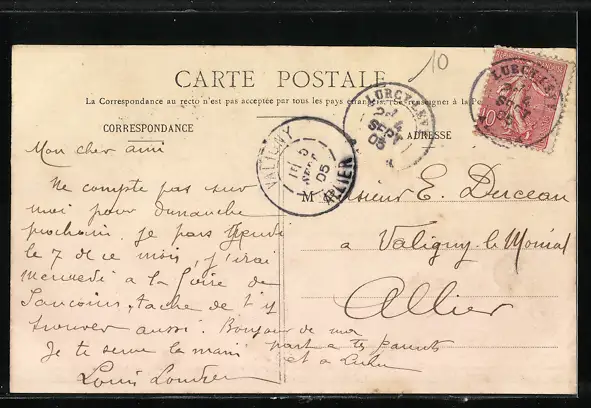 10
CARTE POSTALE
La Correspondance au recto n'est pas acceptée par tous les pays étrangers (Se renseigner à la
CORRESPONDANCE
ADRESSE
LURCY-LEVY
SEPT
05
LURCY-LEVY
10c
VALIGNY
05
ALLIER
M
Mon cher ami
Ne compte pas sur
moi pour dimanche
prochain. Je pars Jeudi
le 7 de ce mois, j'irai
Mercredi a la foire de
Sancoins, tache de t'y
trouver aussi. Bonjour de ma
part a tes parents
et a
Je te serre la main
Louis
Monsieur E. Derceau
a Valigny-le-Monial
Allier